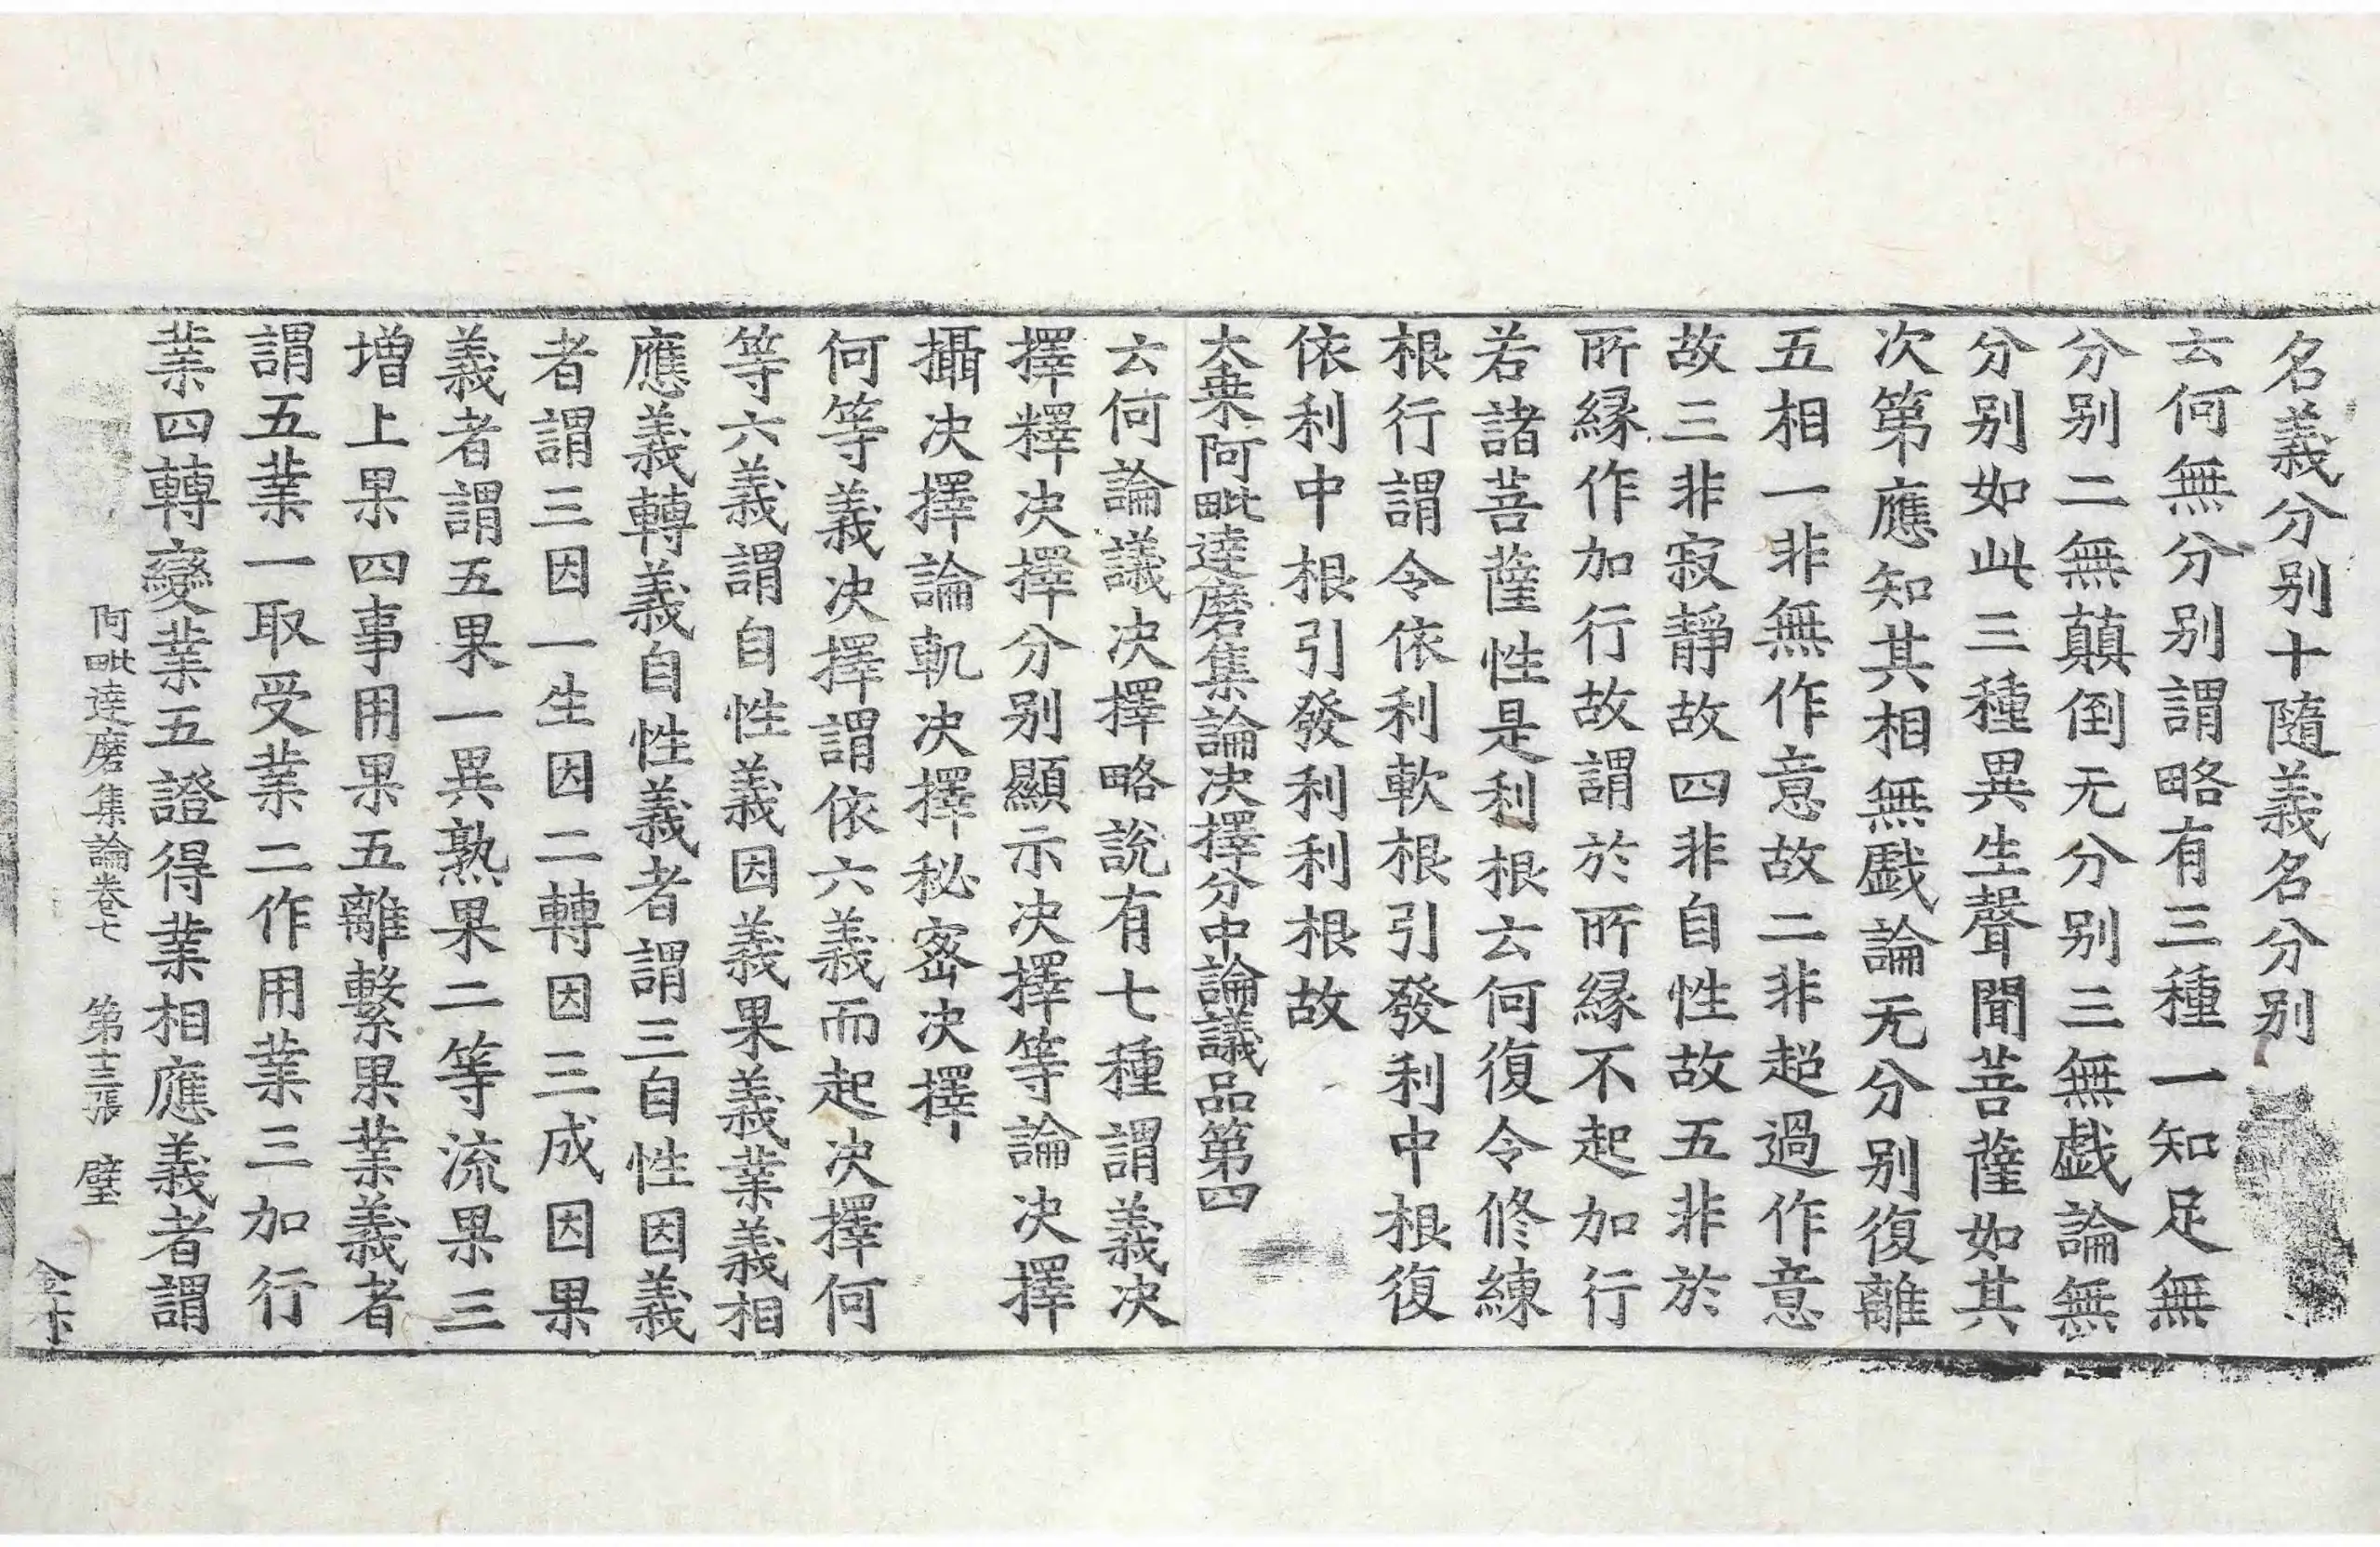 名義分别十隨義名分别
云何無分别謂略有三種一知足無
分别二無顛倒无分别三無戱論無
分别如此三種異生聲聞菩薩如其
次第應知其相無戱論无分别復離
五相一非無作意故二非超過作意
故三非寂靜故四非自性故五非於
所縁作加行故謂於所縁不起加行
若諸菩薩性是利根云何復令修練
根行謂令依利軟根引發利中根復
依利中根引發利利根故
大乗阿毗達磨集論决擇分中論議品第四
云何論議决擇略說有七種謂義决
擇釋决擇分别顯示决擇等論决擇
攝决擇論軌决擇秘密决擇
何等義决擇謂依六義而起决擇何
等六義謂自性義因義果義業義相
應義轉義自性義者謂三自性因義
者謂三因一生因二轉因三成因果
義者謂五果一異熟果二等流果三
増上果四事用果五離繫果業義者
謂五業一取受業二作用業三加行
業四轉變業五證得業相應義者謂
阿毗達磨集論卷七 第十三張 璧